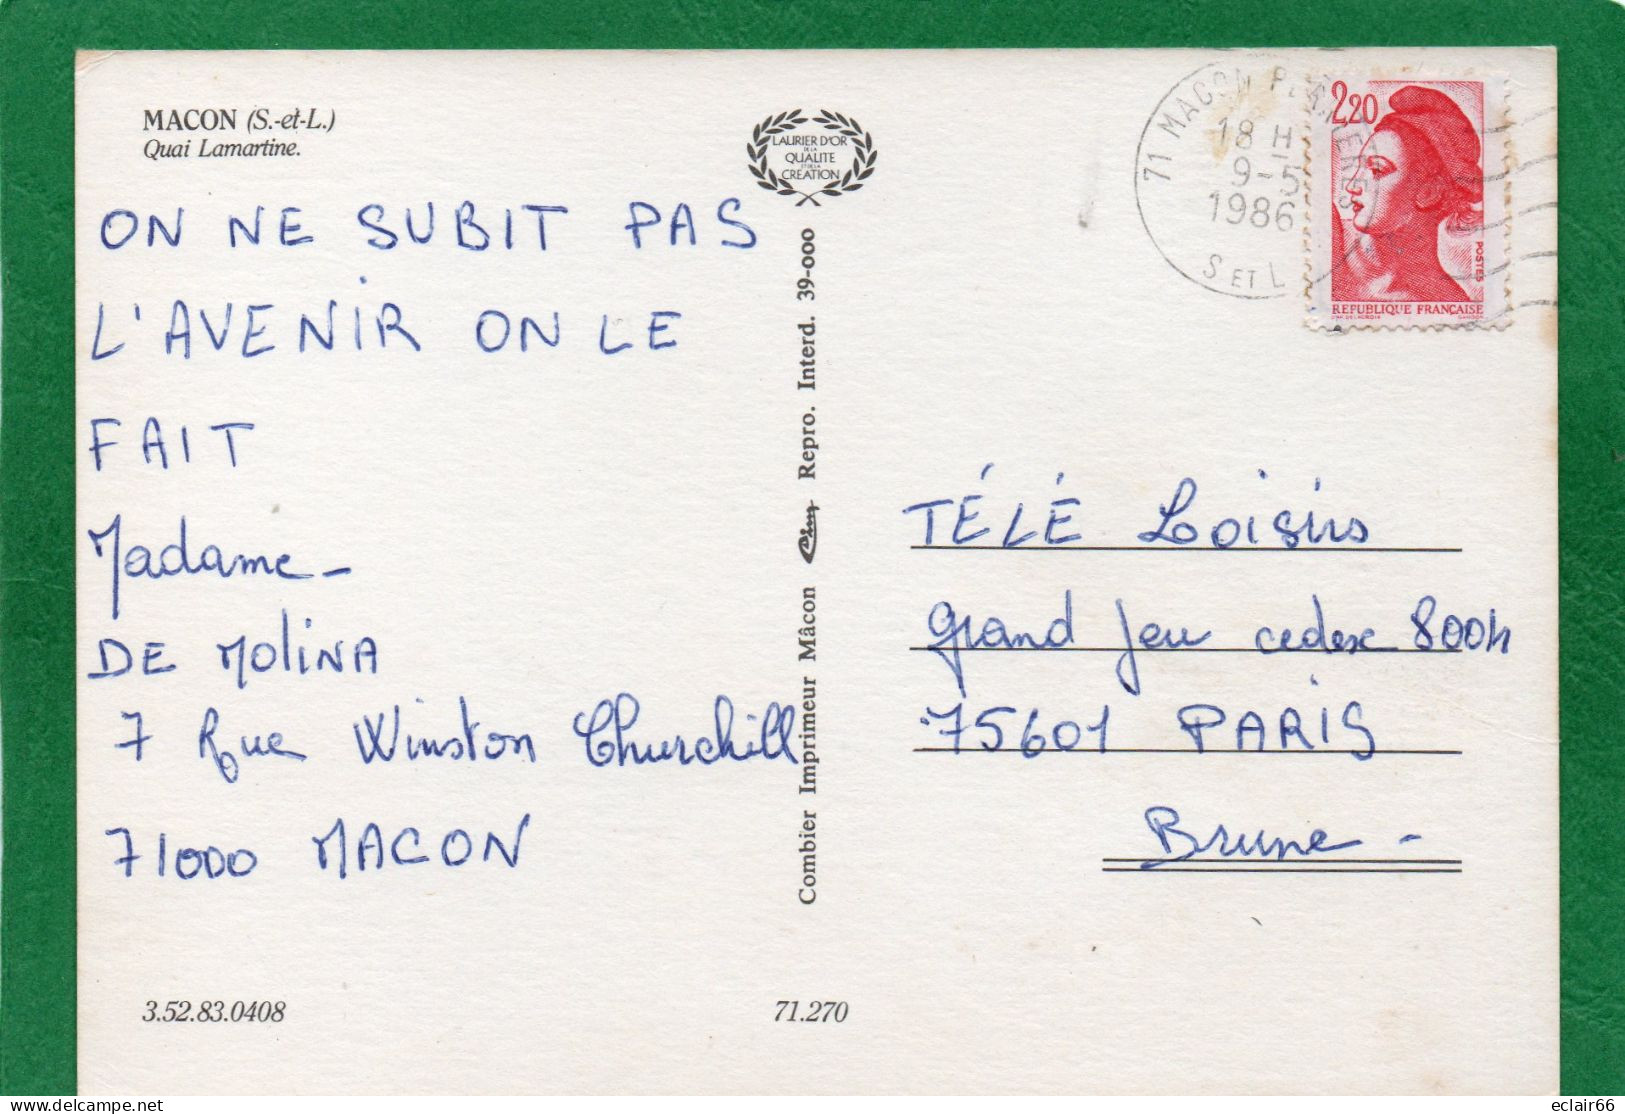 MACON (S.-et-L.)
Quai Lamartine.
ON NE SUBIT PAS
L'AVENIR ON LE
FAIT
Madame -
DE MOLINA
7 Rue Winston Churchill
71000 MACON
3.52.83.0408
LAURIER D'OR
DE LA
QUALITE
ET DE LA
CREATION
Combier Imprimeur Mâcon Cim Repro. Interd. 39-000
71.270
71 MACON
18 H
9-5
1986
S ET L
2,20
POSTES
REPUBLIQUE FRANÇAISE
D'AP. DELACROIX GANDON
TÉLÉ Loisirs
grand jeu cedex 800h
75601 PARIS
Brune -
delcampe.net
eclair66